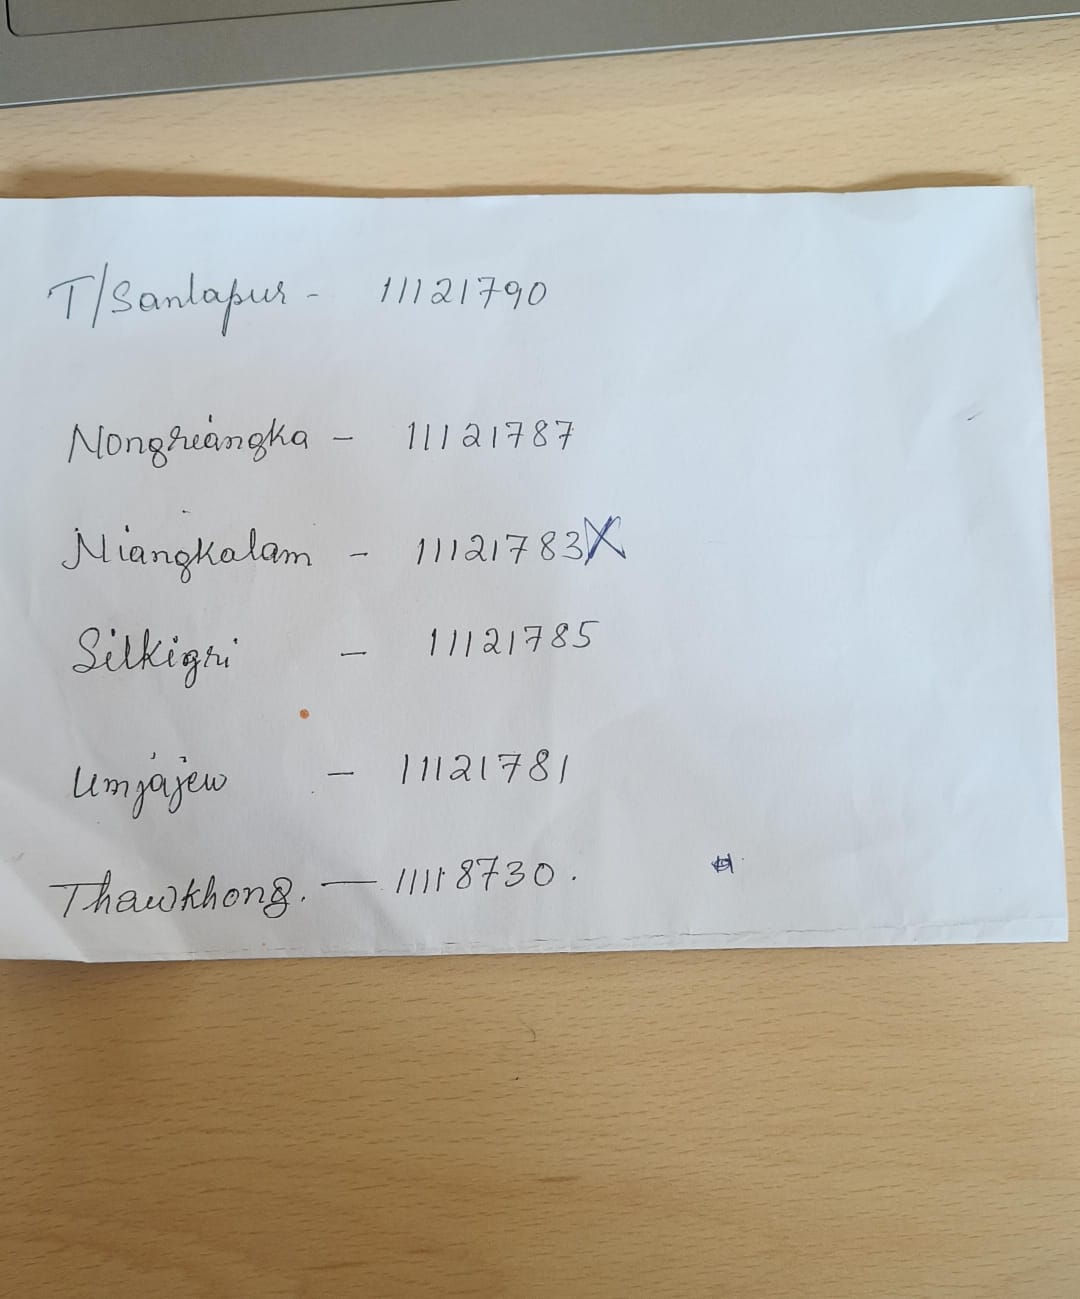 T/Sanlapur - 11121790
Nongriangka - 11121787
Niangkalam - 11121783X
Silkigri - 11121785
Umjajew - 11121781
Thawkhong. - 11118730.